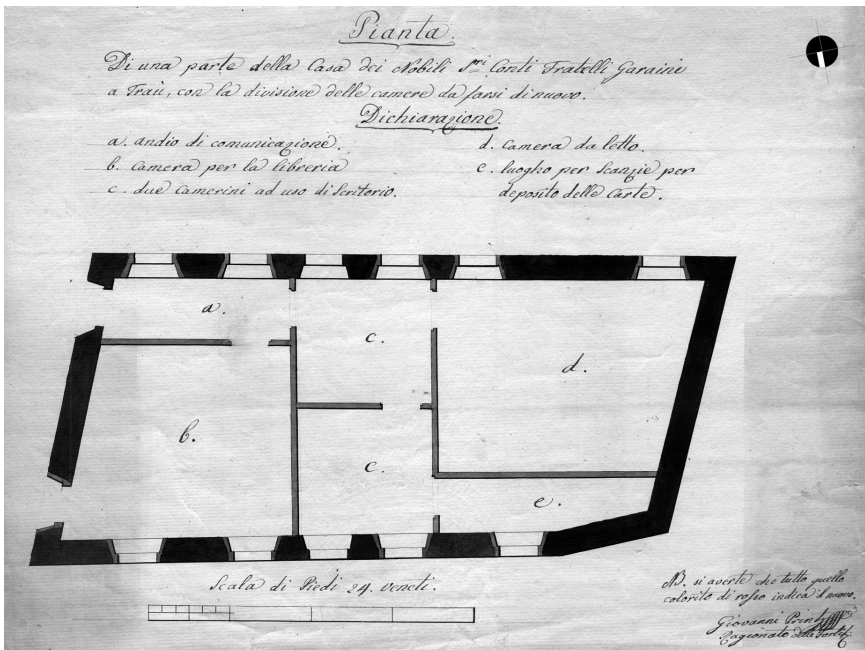 Pianta.
Di una parte della Casa dei Nobili S.ri Conti Fratelli Garaini
a Traù, con la divisione delle camere da farsi di nuovo.
Dichiarazione.
a. andio di comunicazione.
b. Camera per la libreria
c. due Camerini ad uso di Scritorio.
d. Camera da letto.
e. luogho per Scanzie per
deposito delle Carte.
a.
c.
d.
b.
c.
e.
Scala di Piedi 24. veneti.
NB. si averte che tutto quello
colorito di rosso indica il nuovo.
Giovanni
Ragionato